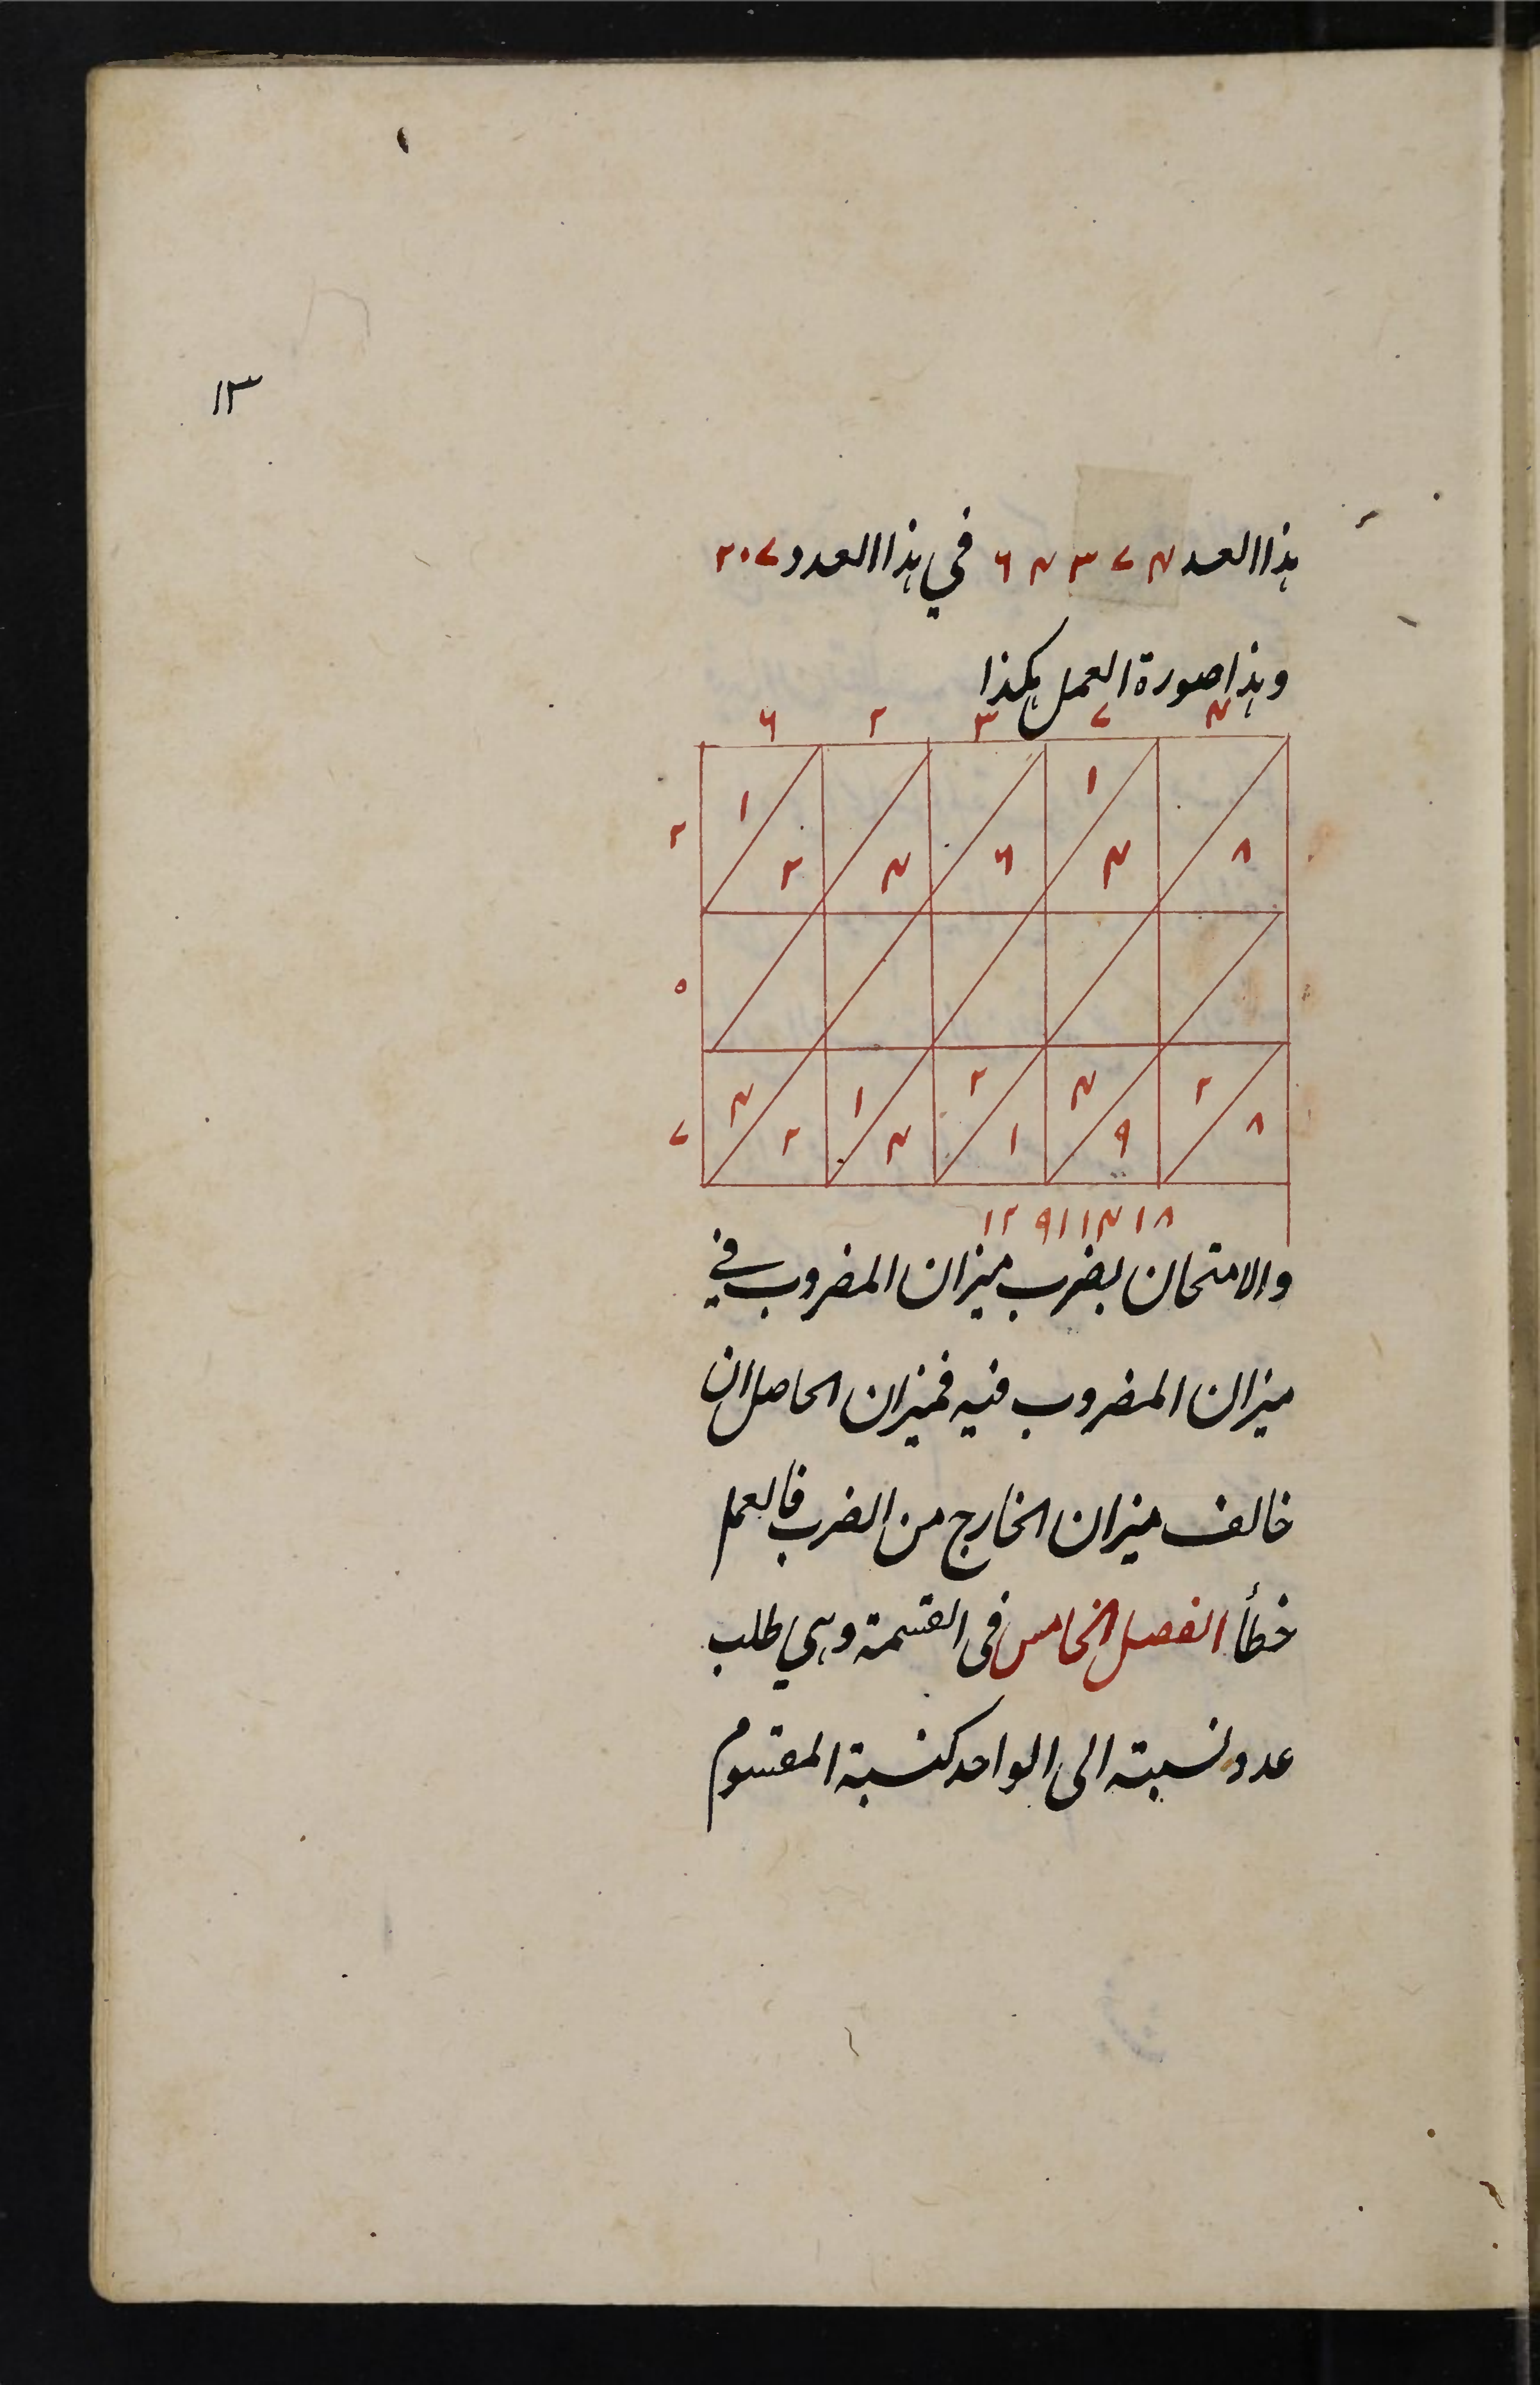 ١٣
هذا العد ٦٢٣٧٤ في هذا العدد ٢٠٧
وهذا صورة العمل هكذا
٦ ٢ ٣ ٧ ٤
٢ ١ ٢ ٤ ٦ ١ ٤ ٨
٥
٧ ٤ ٢ ١ ٤ ٢ ١ ٤ ٩ ٢ ٨
١٢٩١١٤١٨
والامتحان بضرب ميزان المضروب في
ميزان المضروب فيه فميزان الحاصل ان
خالف ميزان الخارج من الضرب فالعمل
خطأ الفصل الخامس فى القسمة وهي طلب
عدد نسبته الى الواحد كنسبة المقسوم